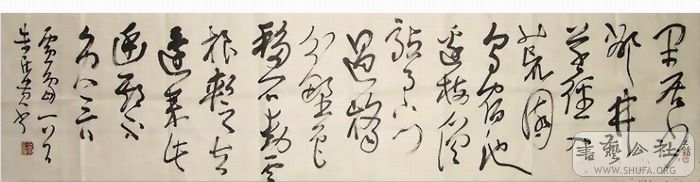 閒居少
鄰并
草徑入
荒園
鳥宿池
邊樹僧
敲月下門
過橋
分野色
移石動雲
根暫去
還來此
幽期不
負言
書藝公社
WWW.SHUFA.ORG